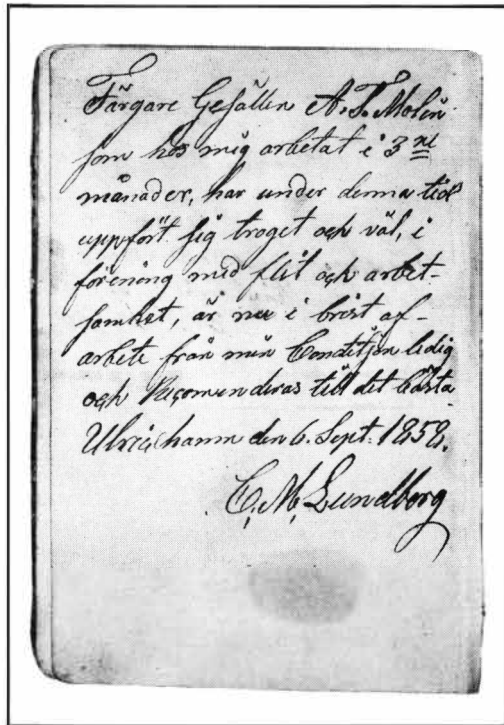 Färgare Gesällen A. T. Molin
som hos mig arbetat i 3ne
månader, har under denna tid
uppfört sig troget och väl, i
förening med flit och arbet-
samhet, är nu i brist af-
arbete från min Condition ledig
och Recomenderas till det bästa
Ulricehamn den 6. Sept. 1858.
C. M. Lundborg